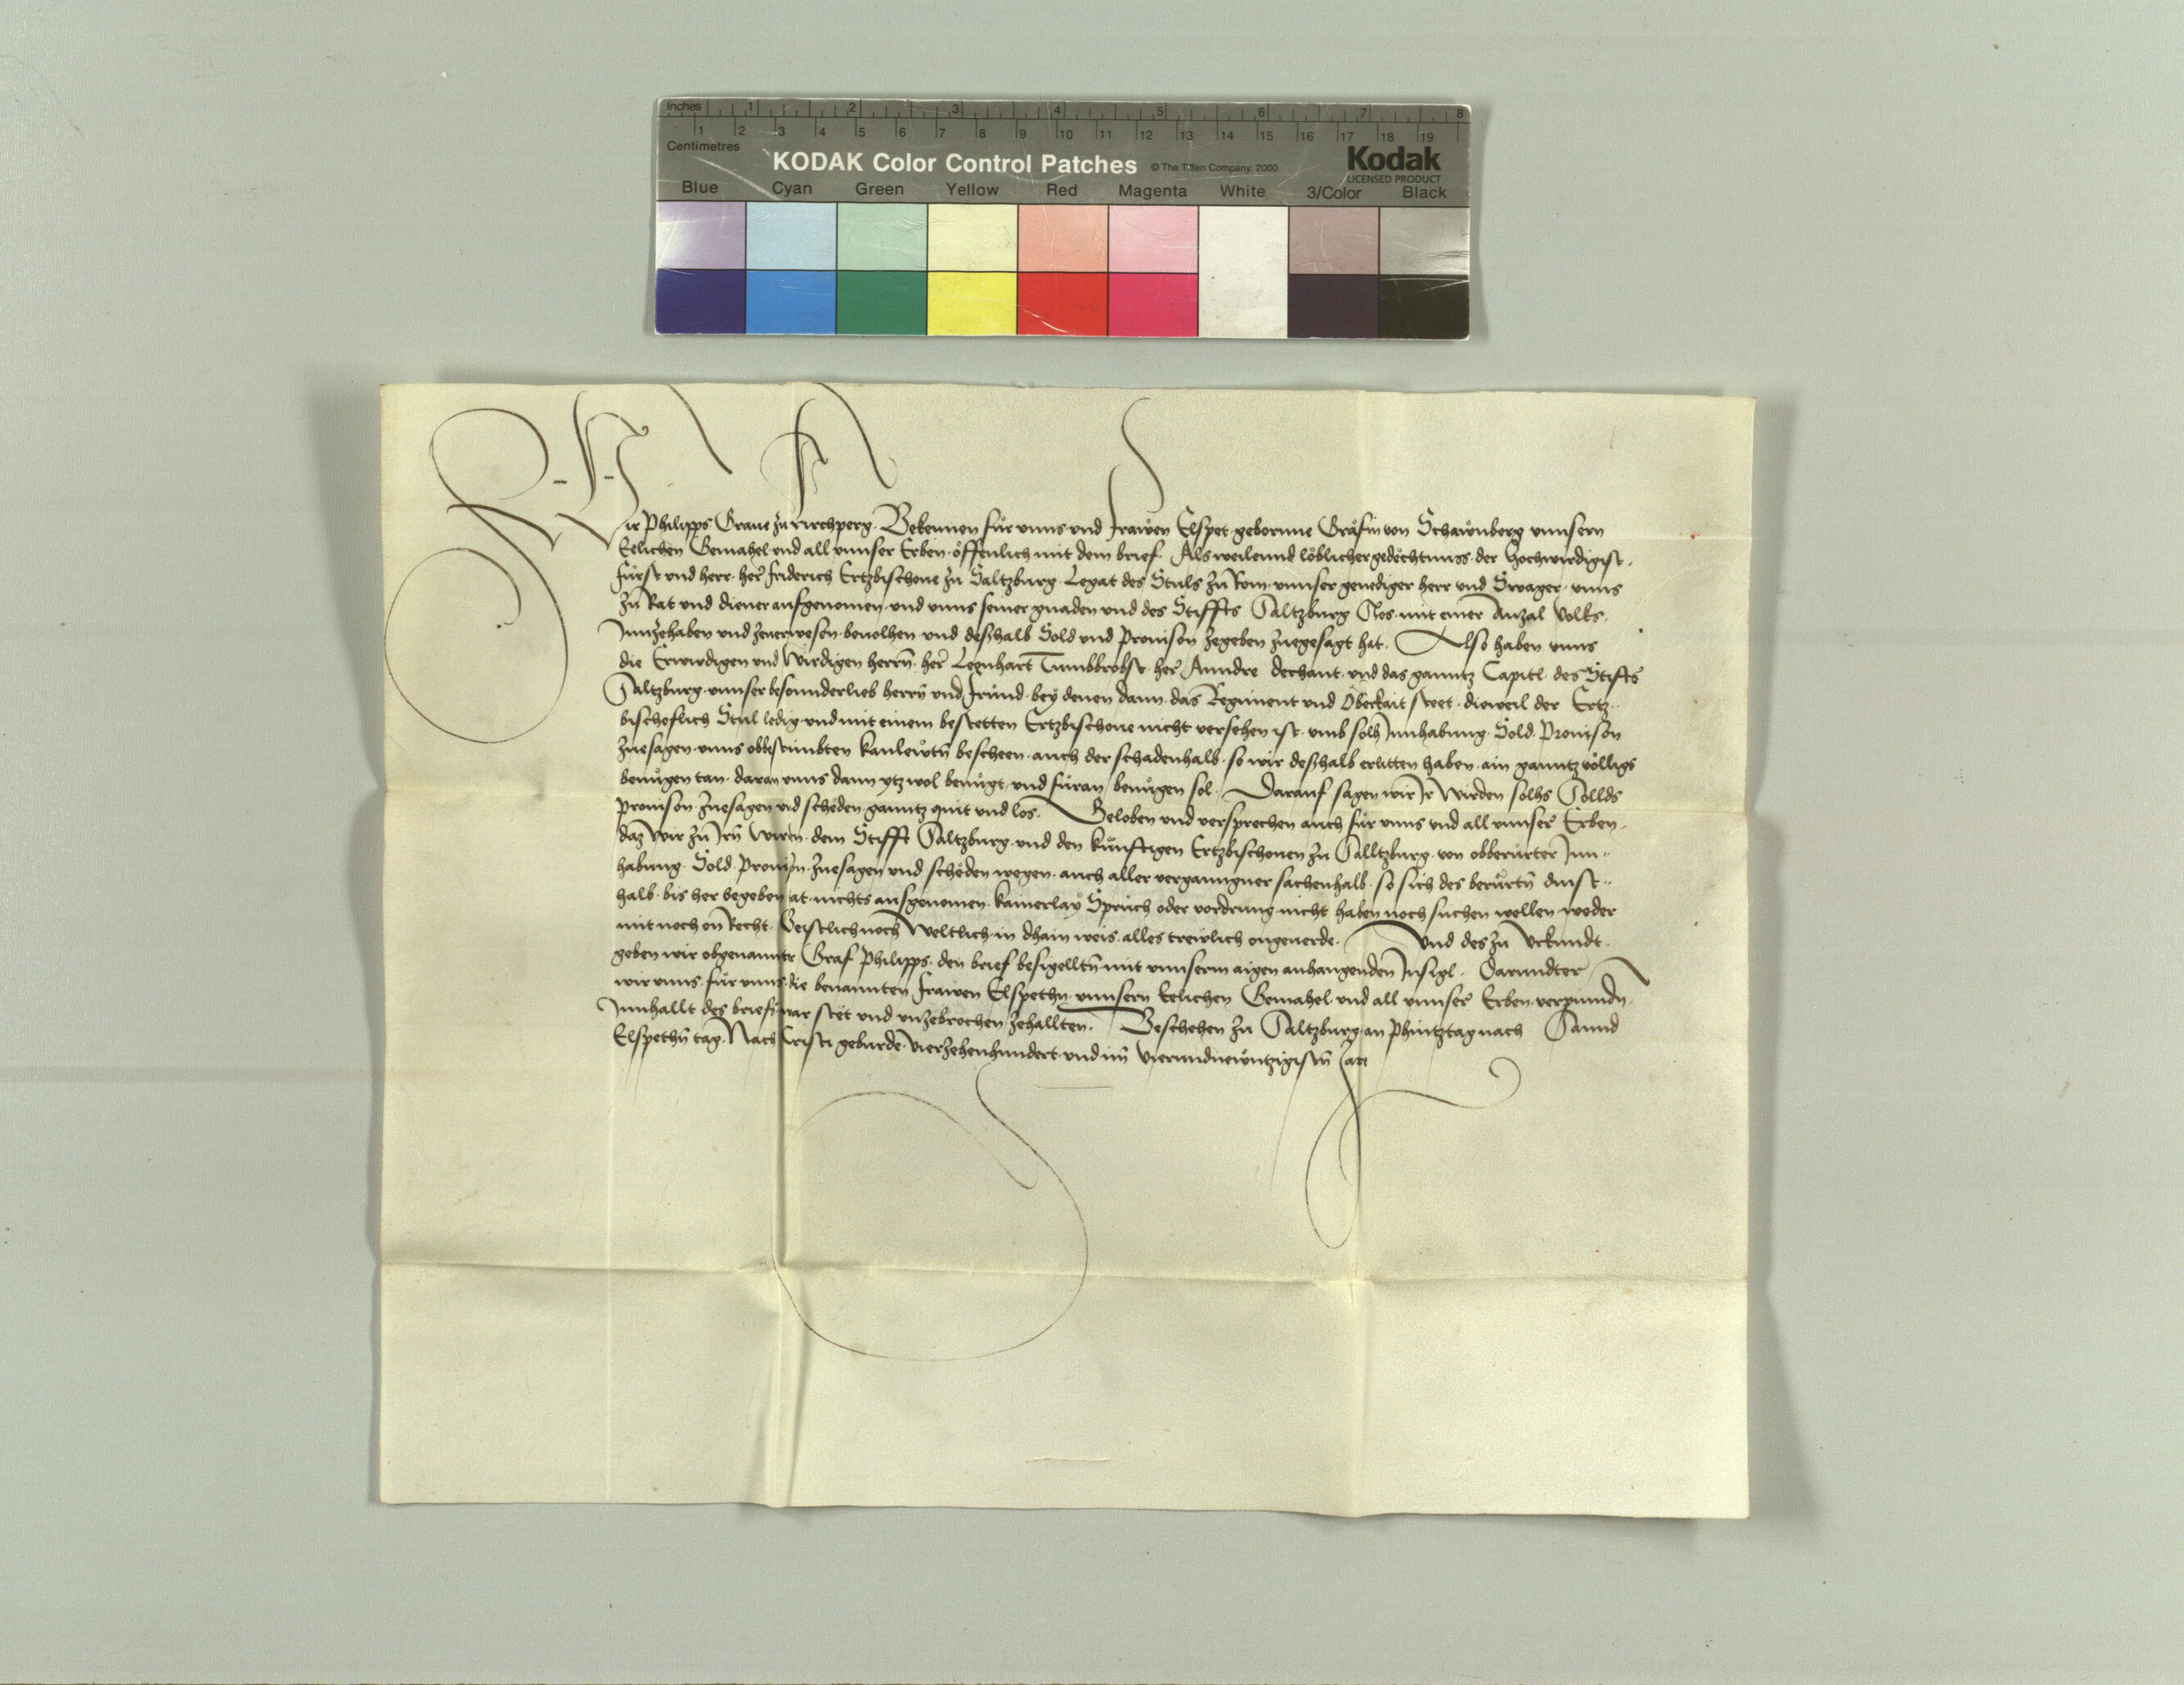 Inches 1 2 3 4 5 6 7 8
1 2 3 4 5 6 7 8 9 10 11 12 13 14 15 16 17 18 19
Centimetres
KODAK Color Control Patches © The Tiffen Company, 2000 Kodak
LICENSED PRODUCT
Blue Cyan Green Yellow Red Magenta White 3/Color Black
Wir Philipps Graue zu kirchperg. Bekennen für vnns vnd frawen Elspet geborne Gräfin von Schawnberg vnnsern
Eelichen Gemahel vnd all vnnser Erben. öffenlich mit dem brief. Als weilennd löblicher gedechtnuss. der hochwirdigist.
fürst vnd herr. her Friderich Ertzbischoue zu Saltzburg. Legat des Stuls zu Rom. vnnser genediger herr vnd Swager. vnns
zu Rat vnd diener aufgenomen. vnd vnns seiner gnaden vnd des Stiffts Saltzburg Slos. mit einer Anzal Volks.
Innzehaben vnd zuuerwesen. beuolhen vnd deßhalb Sold vnd prouison zegeben zuegesagt hat. Also haben vnns
die Erwirdigen vnd wirdigen herrn. her Leonhart Tumbbrobst. her Anndre dechant. vnd das ganntz Capitl. des Stiffts
Saltzburg. vnnser besonnderlieb herrn vnd freund. bey denen dann. das Regiment vnd Oberkait steet. dieweil der Ertz-
bischoflich Stul ledig. vnd mit einem bestetten Ertzbischoue nicht versehen ist. vmb solh Innhabung. Sold. Prouison
zuesagen. vnns obbestimbten kanlewtn bescheen. auch der schadenhalb. so wir deßhalb erlitten haben. ain ganntz völligs
benügen tan. daran vnns dann ytz wol benügt. vnd füran benügen sol. Darauf sagen wir Ir wirden solhs Sollds
prouison zuesagen vnd scheden. ganntz quit vnd los. Geloben vnd versprechen auch für vnns vnd all vnnser Erben.
daz wir zu Irn wirden. dem Stifft Saltzburg. vnd den künftigen Ertzbischouen zu Salltzburg. von obberürter Inn-
habung. Sold. prouison. zuesagen vnd scheden wegen. auch aller verganngner sachenhalb. so sich des berürtn dinst-
halb. bis her begeben hat. nichts ausgenomen. kainerlay Spruch oder vordrung nicht haben noch suchen wellen. weder
mit noch on Recht. Geistlich noch Weltlich. in dhain weis. alles trewlich ongeuerde. Vnd des zu Vrkundt.
geben wir obgenannter Graf Philipps. den brief besigelltn mit vnnserm aigen anhangenden Insigl. Darundter
wir vnns. für vnns. die benannten frawen Elspethn. vnnsern Eelichen Gemahel. vnd all vnnser Erben. verpinndn.
Innhallt des briefs war stet vnd vnzebrochen zehallten. Beschehen zu Saltzburg. an phintztag nach Sannd
Elspethn tag. Nach Cristi geburde. Vierzehenhundert. vnd im Vierundnewntzigistn Jare